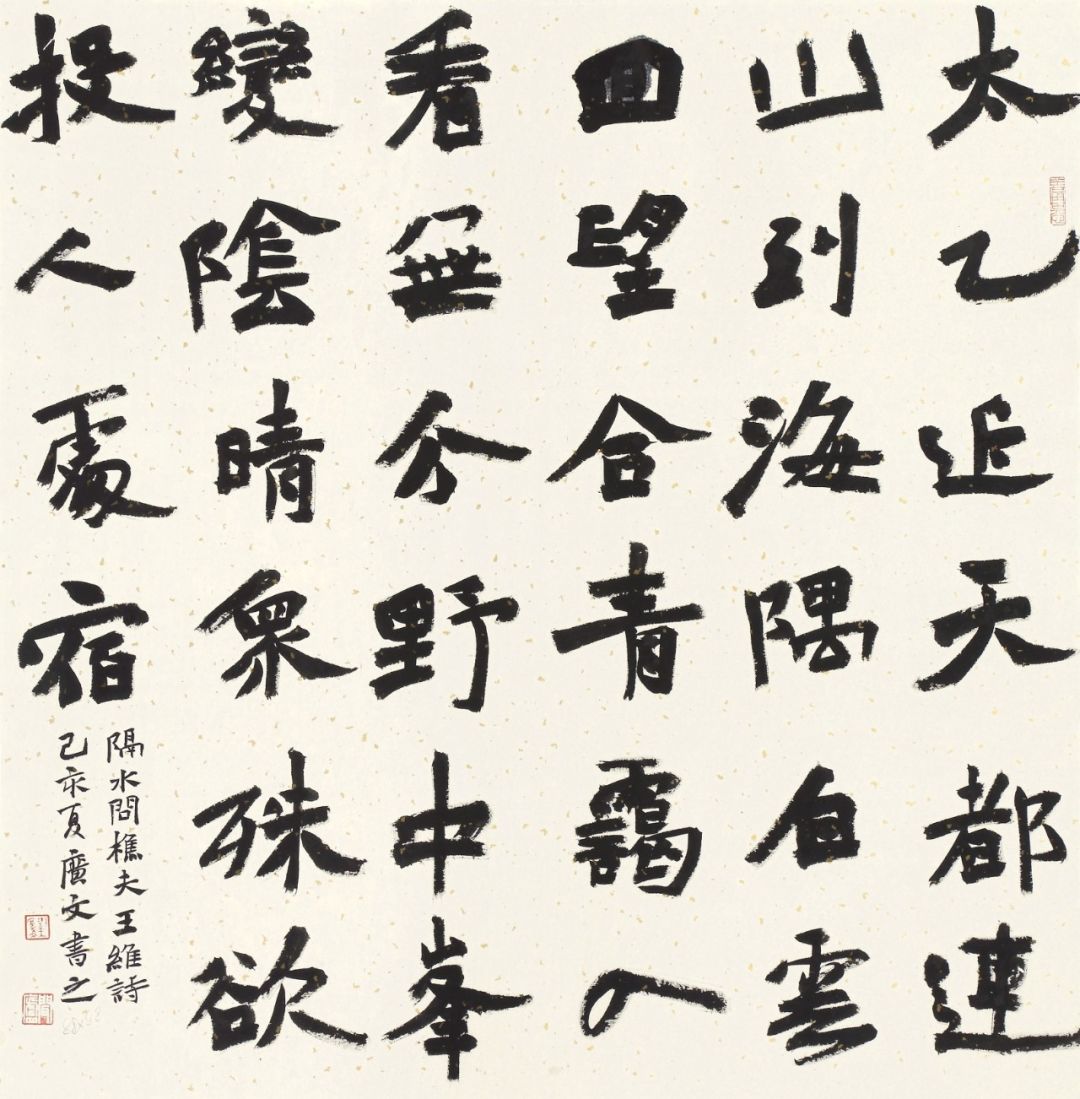 太乙近天都連
山到海隅白雲
回望合青靄入
看無分野中峯
變陰晴衆殊欲
投人處宿
隔水問樵夫王維詩
己亥夏廣文書之